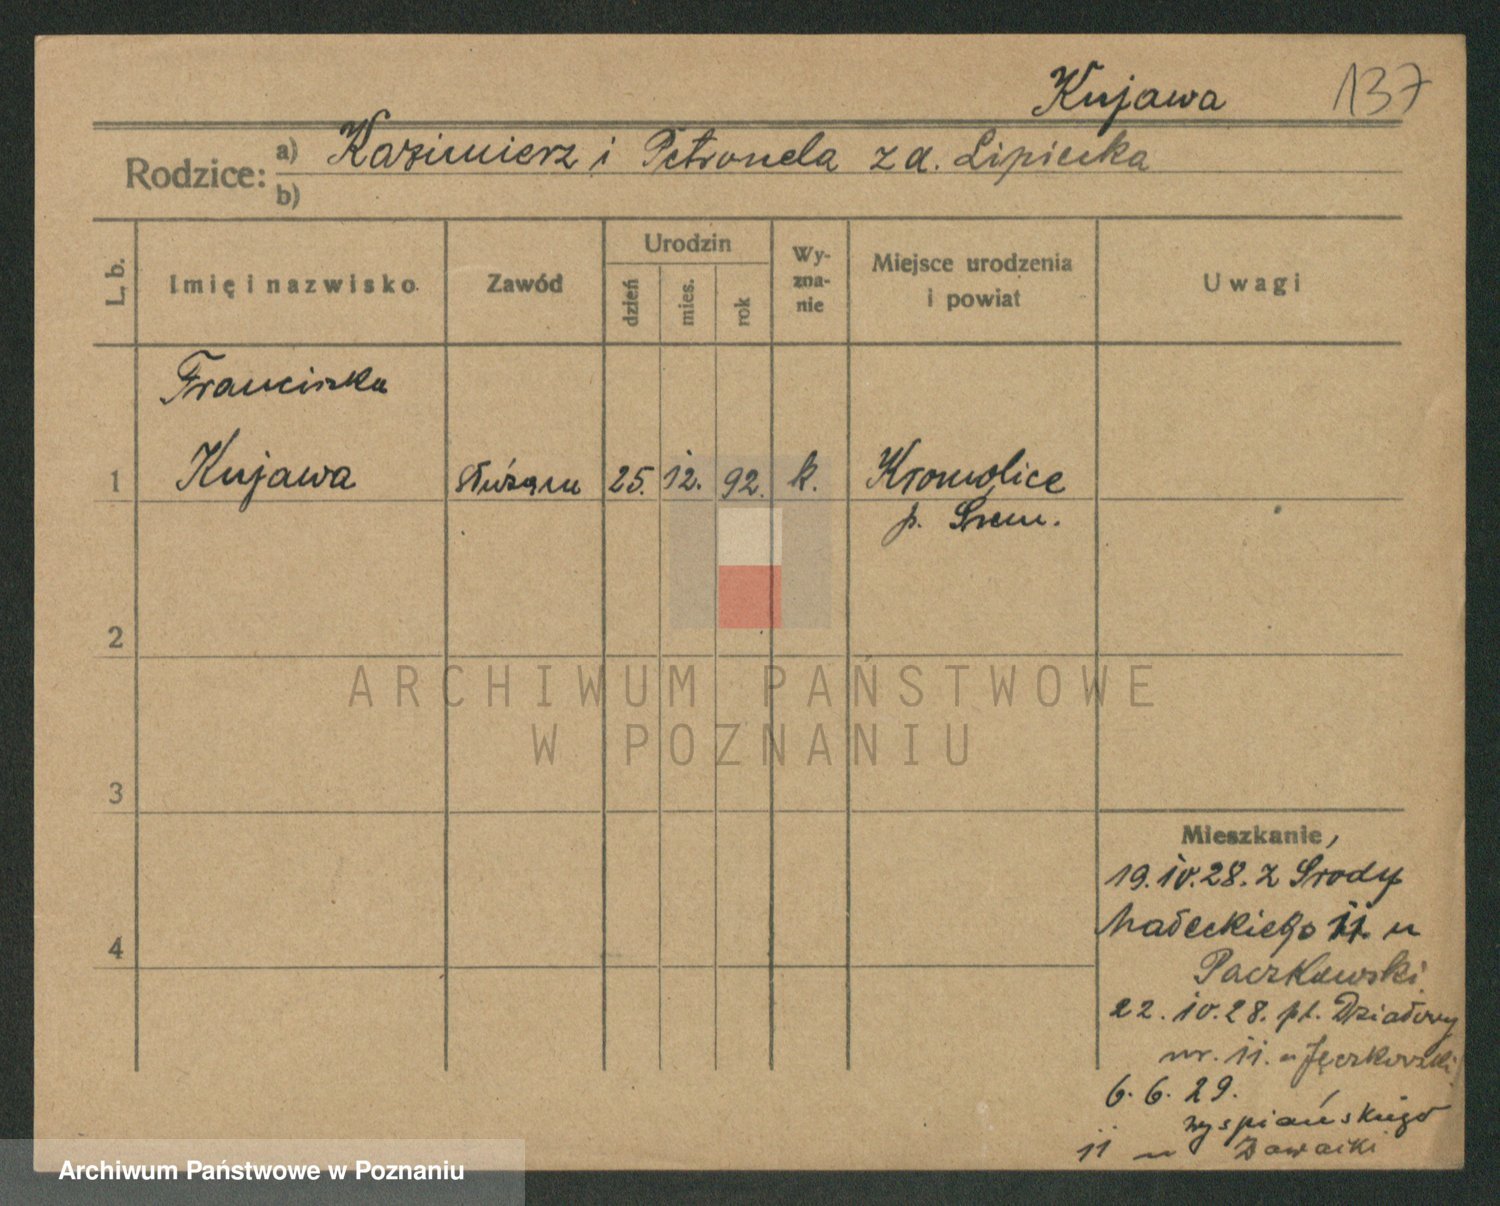 Kujawa 137
Rodzice: a) Kazimierz i Petronela z d. Lipicka
b)
L. b. Imię i nazwisko Zawód Urodzin dzień mies. rok Wy-zna-nie Miejsce urodzenia i powiat Uwagi
Franciszka
1 Kujawa służąca 25. 12. 92. k. Kromolice
p. Śrem.
2
ARCHIWUM PAŃSTWOWE
W POZNANIU
3
Mieszkanie,
19.IV.28. z Środy
Małeckiego 11. u
4
Paczkowski
22.IV.28. pl. Działowy
nr. 11. u
6.6.29.
Wyspiańskiego
11 u
Archiwum Państwowe w Poznaniu